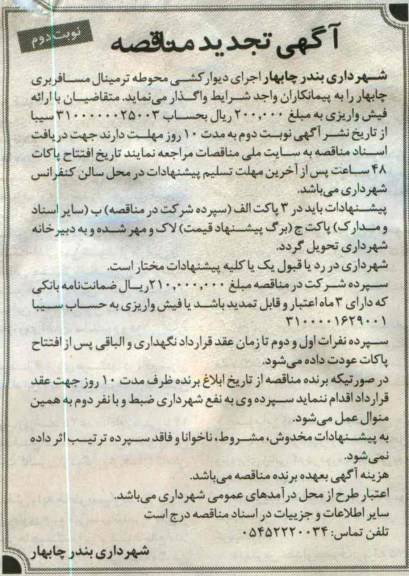 آگهی تجدید مناقصه
نوبت دوم
شهرداری بندر چابهار اجرای دیوارکشی محوطه ترمینال مسافربری
چابهار را به پیمانکاران واجد شرایط واگذار می‌نماید. متقاضیان با ارائه
فیش واریزی به مبلغ ۲۰۰,۰۰۰ ریال بحساب ۳۱۰۰۰۰۰۰۲۵۰۰۳ سیبا
از تاریخ نشر آگهی نوبت دوم به مدت ۱۰ روز مهلت دارند جهت دریافت
اسناد مناقصه به سایت ملی مناقصات مراجعه نمایند تاریخ افتتاح پاکات
۴۸ ساعت پس از آخرین مهلت تسلیم پیشنهادات در محل سالن کنفرانس
شهرداری می‌باشد.
پیشنهادات باید در ۳ پاکت الف (سپرده شرکت در مناقصه) ب (سایر اسناد
و مدارک) پاکت ج (برگ پیشنهاد قیمت) لاک و مهر شده و به دبیرخانه
شهرداری تحویل گردد.
شهرداری در رد یا قبول یک یا کلیه پیشنهادات مختار است.
سپرده شرکت در مناقصه مبلغ ۲۱۰,۰۰۰,۰۰۰ ریال ضمانت‌نامه بانکی
که دارای ۳ ماه اعتبار و قابل تمدید باشد یا فیش واریزی به حساب سیبا
۳۱۰۰۰۰۱۶۲۹۰۰۱
سپرده نفرات اول و دوم تا زمان عقد قرارداد نگهداری و الباقی پس از افتتاح
پاکات عودت داده می‌شود.
در صورتیکه برنده مناقصه از تاریخ ابلاغ برنده ظرف مدت ۱۰ روز جهت عقد
قرارداد اقدام ننماید سپرده وی به نفع شهرداری ضبط و با نفر دوم به همین
منوال عمل می‌شود.
به پیشنهادات مخدوش، مشروط، ناخوانا و فاقد سپرده ترتیب اثر داده
نمی‌شود.
هزینه آگهی بعهده برنده مناقصه می‌باشد.
اعتبار طرح از محل درآمدهای عمومی شهرداری می‌باشد.
سایر اطلاعات و جزییات در اسناد مناقصه درج است
تلفن تماس: ۰۵۴۵۲۲۲۰۰۳۴
شهرداری بندر چابهار